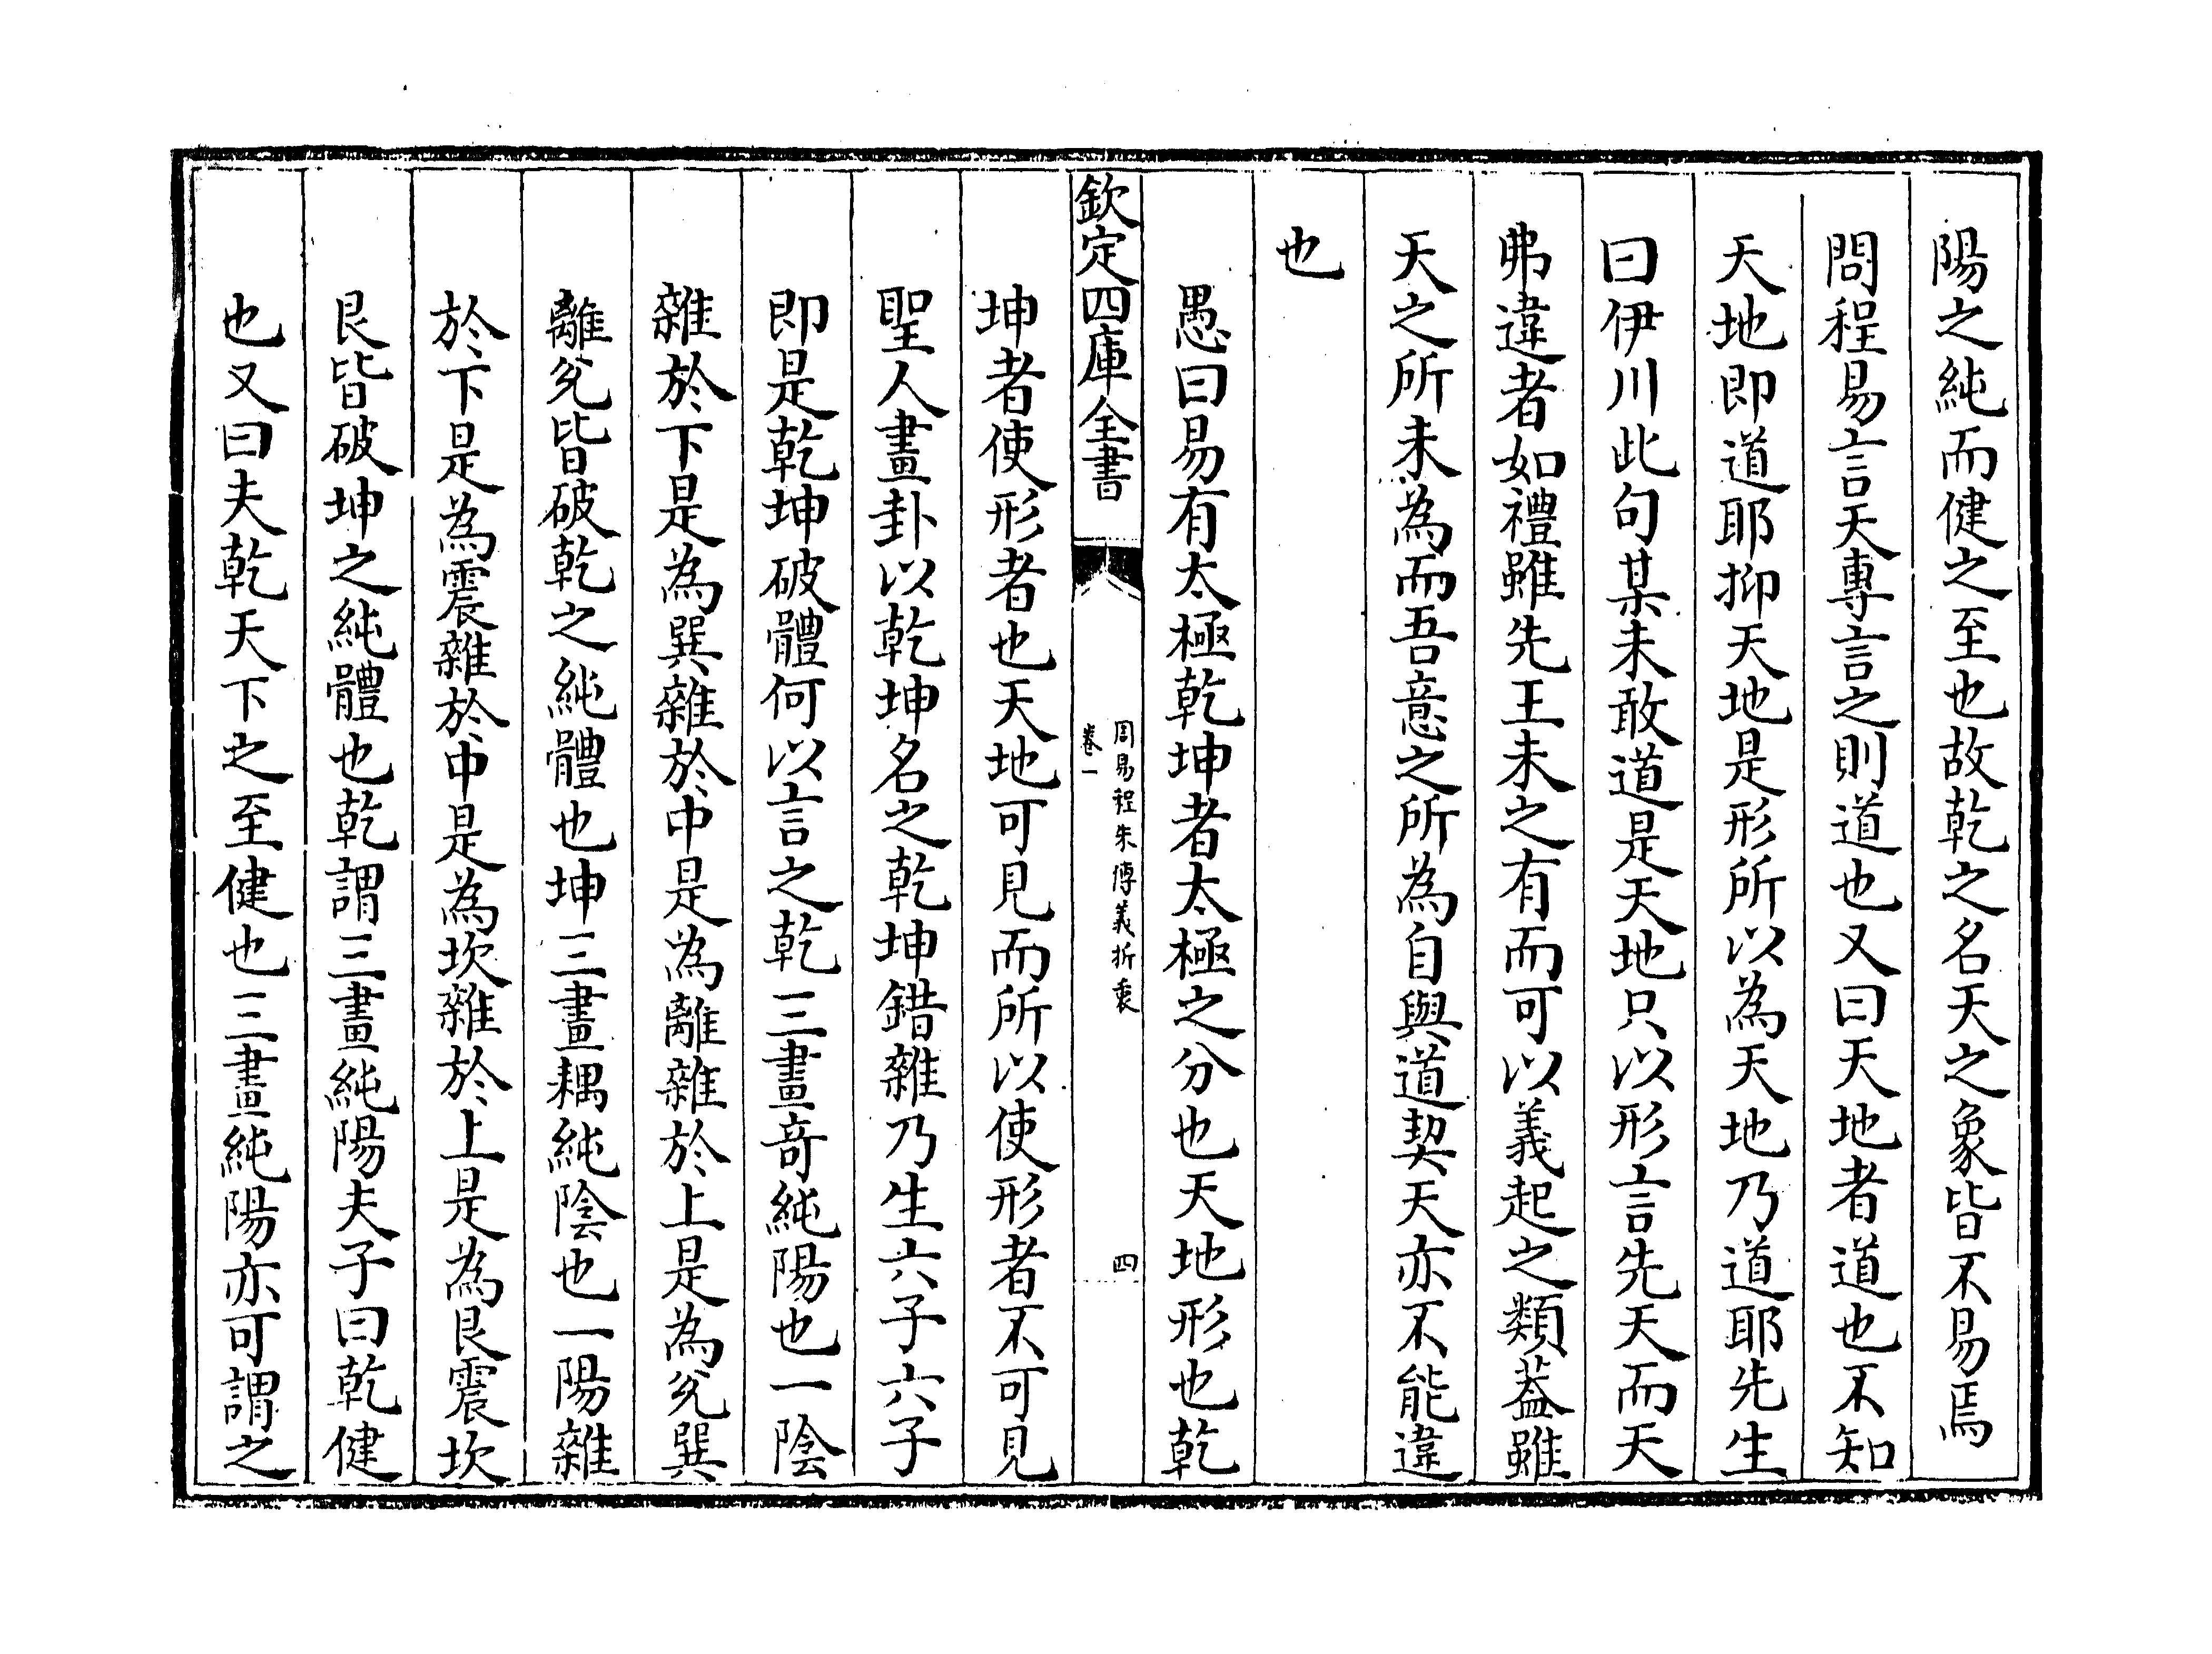 陽之純而健之至也故乾之名天之象皆不易焉
問程易言天專言之則道也又曰天地者道也不知
天地即道耶抑天地是形所以為天地乃道耶先生
曰伊川此句某未敢道是天地只以形言先天而天
弗違者如禮雖先王未之有而可以義起之類葢雖
天之所未為而吾意之所為自與道契天亦不能違
也
愚曰易有太極乾坤者太極之分也天地形也乾
欽定四庫全書
周易程朱傳義折衷
卷一
四
坤者使形者也天地可見而所以使形者不可見
聖人畫卦以乾坤名之乾坤錯雜乃生六子六子
即是乾坤破體何以言之乾三畫竒純陽也一陰
雜於下是為巽雜於中是為離雜於上是為兊巽
離兊皆破乾之純體也坤三畫耦純陰也一陽雜
於下是為震雜於中是為坎雜於上是為艮震坎
艮皆破坤之純體也乾謂三畫純陽夫子曰乾健
也又曰夫乾天下之至健也三畫純陽亦可謂之